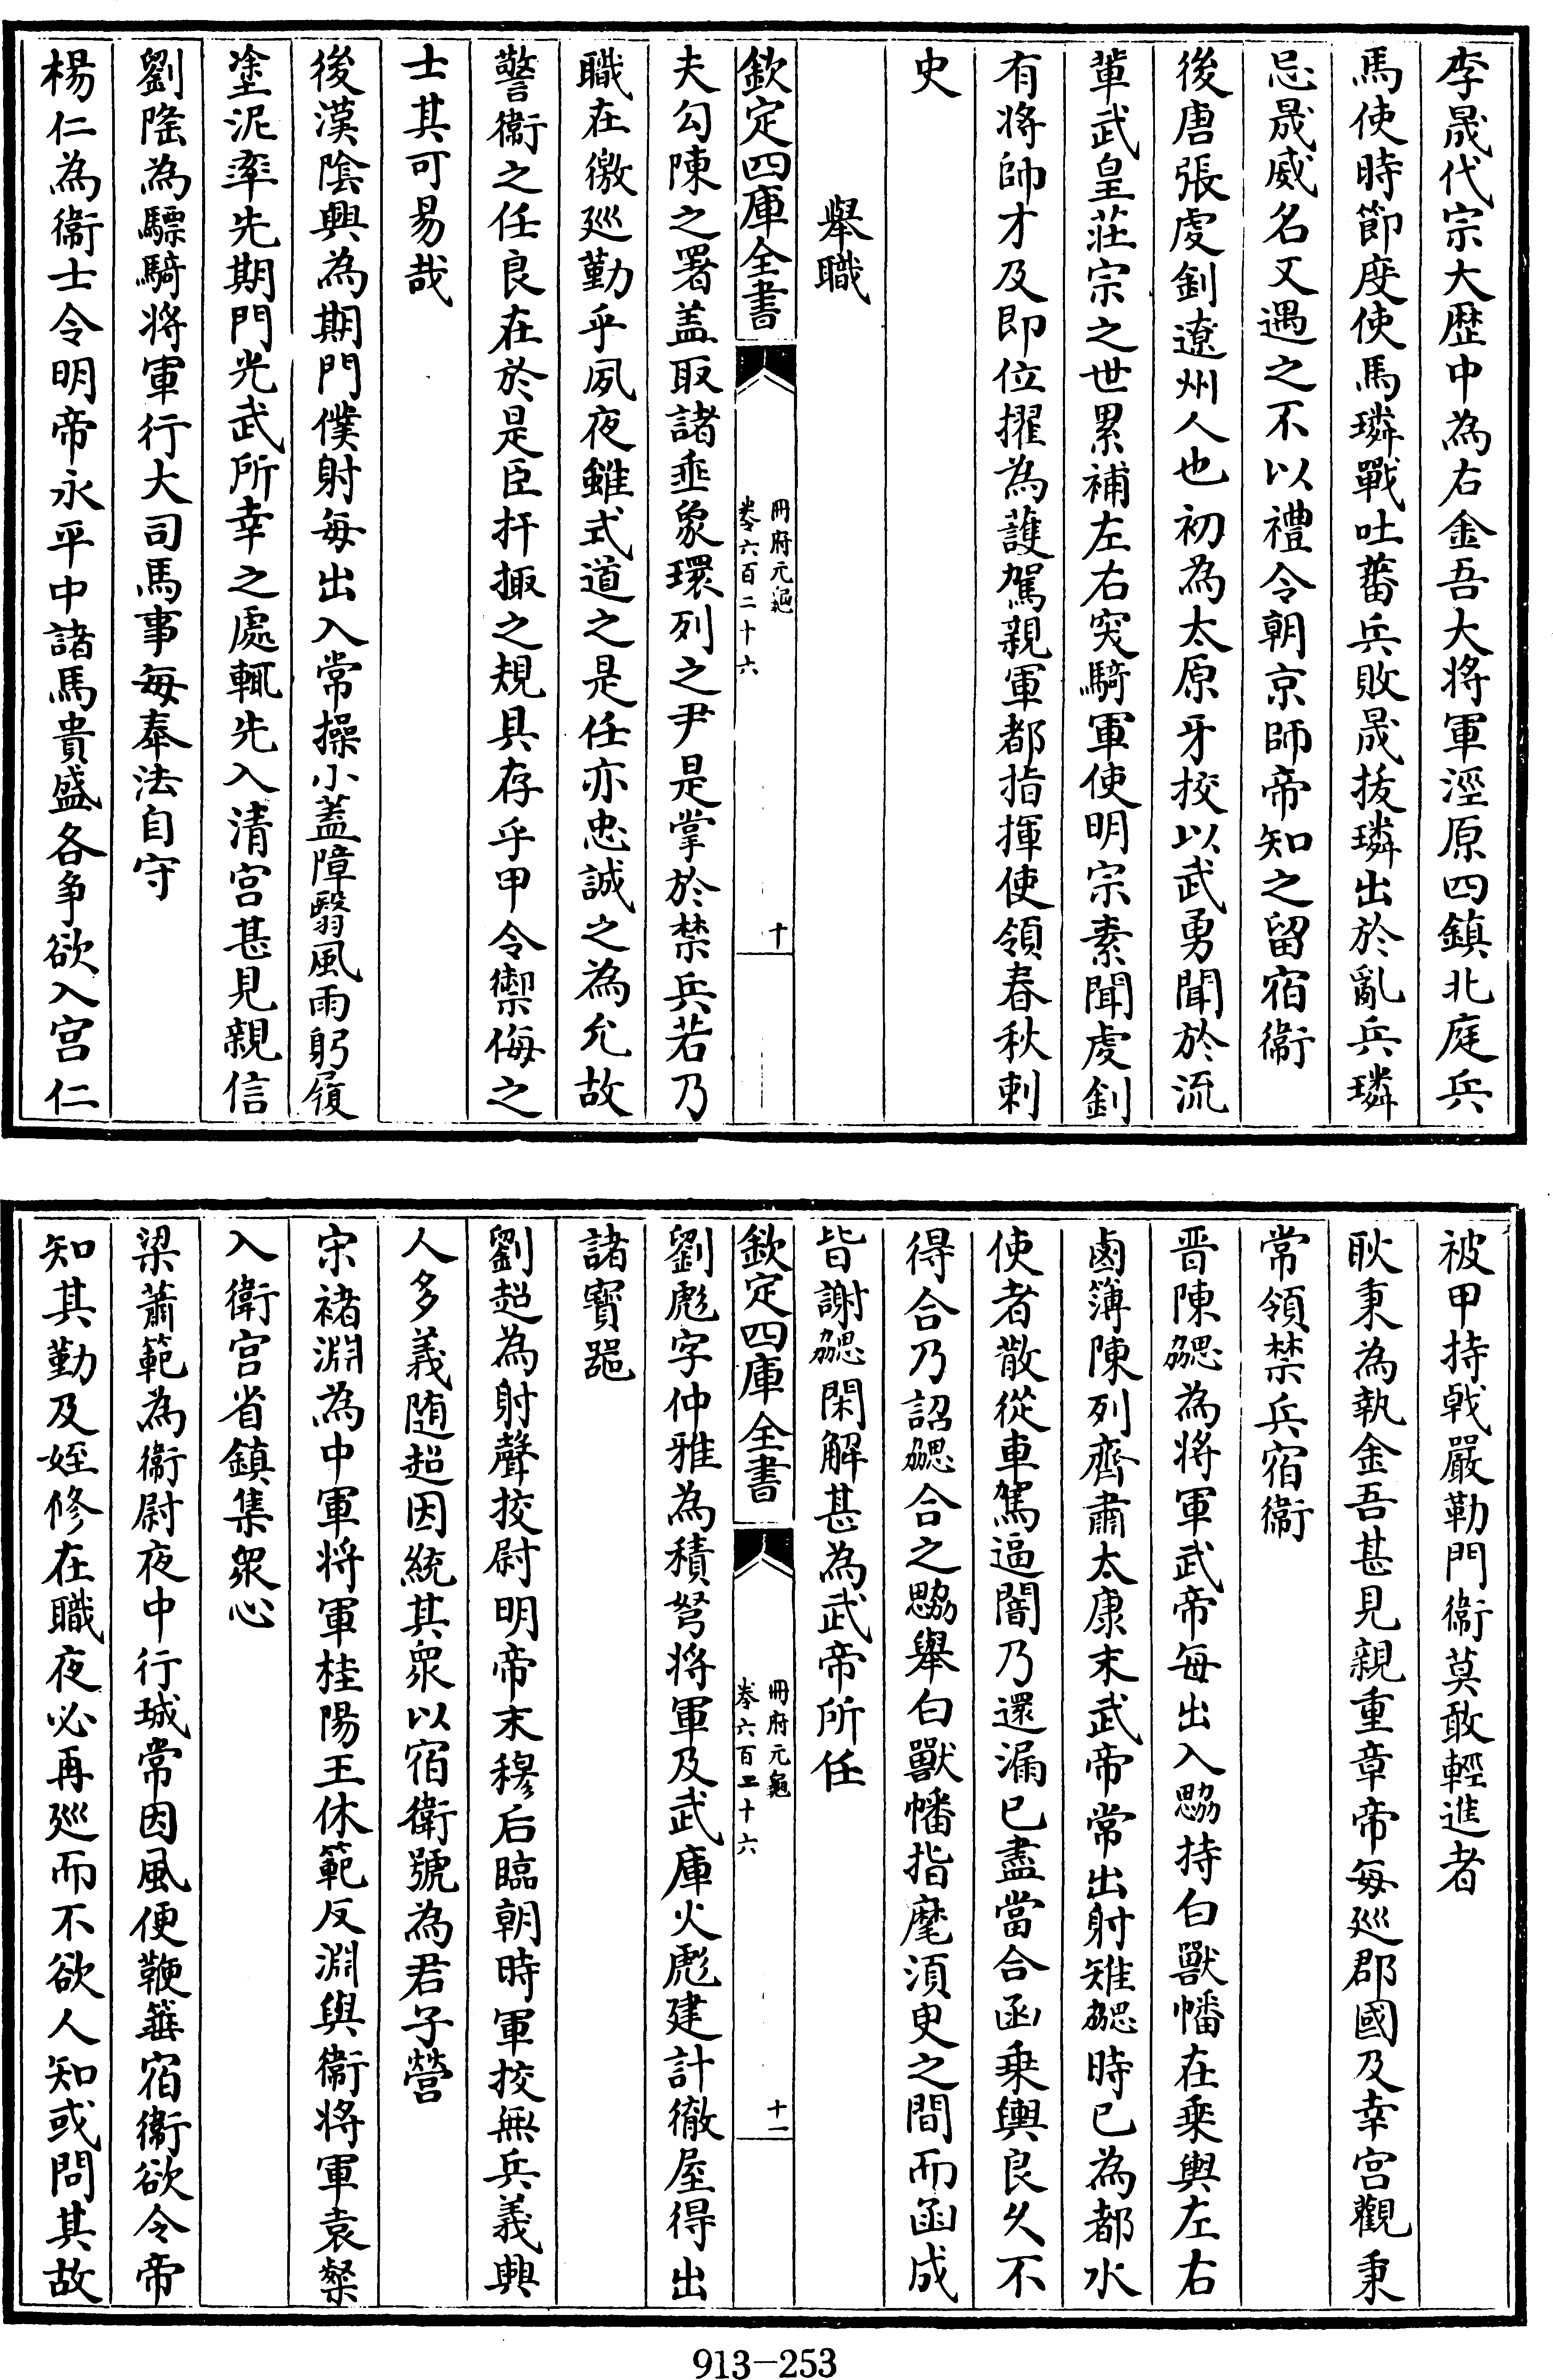 李晟代宗大歴中為右金吾大将軍涇原四鎮北庭兵
馬使時節度使馬璘戰吐蕃兵敗晟拔璘出於亂兵璘
忌晟威名又遇之不以禮令朝京師帝知之留宿衞
後唐張虔釗遼州人也初為太原牙挍以武勇聞於流
輩武皇莊宗之世累補左右突騎軍使明宗素聞虔釗
有将帥才及即位擢為護駕親軍都指揮使領春秋刺
史
舉職
欽定四庫全書
冊府元龜
卷六百二十六
十
夫勾陳之署盖取諸垂象環列之尹是掌於禁兵若乃
職在徼廵勤乎夙夜雖式道之是任亦忠誠之為允故
警衞之任良在於是臣扞掫之規具存乎甲令禦侮之
士其可易哉
後漢陰興為期門僕射每出入常操小蓋障翳風雨躬履
塗泥率先期門光武所幸之處輒先入清宫甚見親信
劉隆為驃騎将軍行大司馬事每奉法自守
楊仁為衞士令明帝永平中諸馬貴盛各争欲入宫仁
被甲持戟嚴勒門衞莫敢輕進者
耿秉為執金吾甚見親重章帝每廵郡國及幸宫觀秉
常領禁兵宿衞
晋陳勰為将軍武帝每出入勰持白獸幡在乗輿左右
鹵簿陳列齊肅太康末武帝常出射雉勰時已為都水
使者散從車駕逼闇乃還漏已盡當合函乗輿良乆不
得合乃詔勰合之勰舉白獸幡指麾須臾之間而函成
皆謝勰閑解甚為武帝所任
欽定四庫全書
冊府元龜
卷六百二十六
十一
劉彪字仲雅為積弩将軍及武庫火彪建計徹屋得出
諸寳噐
劉超為射聲挍尉明帝末穆后臨朝時軍挍無兵義興
人多義随超因統其衆以宿衛號為君子營
宋褚淵為中軍将軍桂陽王休範反淵與衞将軍袁粲
入衛宫省鎮集衆心
梁蕭範為衞尉夜中行城常因風便鞭箠宿衞欲令帝
知其勤及姪修在職夜必再廵而不欲人知或問其故
913-253